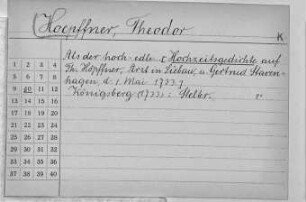 Hoepffner, Theodor
K
Als der hoch-edle [Hochzeitsgedichte auf
Th. Höpffner, Arzt in Liebau, u. Gertrud Staven-
hagen, d. 1. Mai 1733.]
Königsberg (1733): Stelter.
1 2 3 4
5 6 7 8
9 10 11 12
13 14 15 16
17 18 19 20
21 22 23 24
25 26 27 28
29 30 31 32
33 34 35 36
37 38 39 40